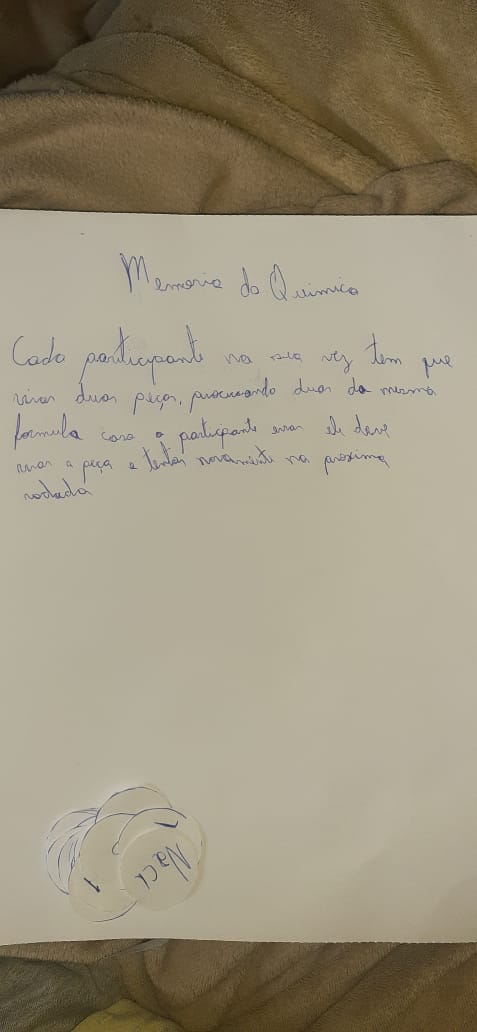 Memoria da Quimica
Cada participante na sua vez tem que
virar duas peças, procurando duas da mesma
formula caso o participante errar ele deve
virar a peça e tentar novamente na proxima
rodada
NaCl
1